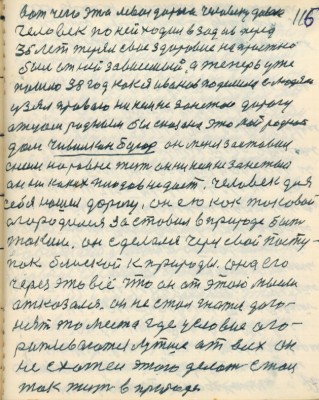 вот чего эта левая дорога человеку дала 115
человек по ней ходил в зад и в перед
35 лет терял свое здоровие на
был от ней зависимый, а теперь уже
пошло 38 год как я Иванов поделился с людями
узял право ни кем не занетою дорогу
а там родным был сказана это мой родной
дом Чивилкин бугор он меня заставил
смело на ровне жит он ни кем не занетый
он ни каких плодов не дает. человек для
себя нашел дорогу, он ею как таковой
огородился заставил в природе быть
таким. он сделался через свой посту-
пок близкой к природы. она его
через это всё что он от этого мысли
отказался. он не стал гнатся дого-
нят то места где условие ого-
раживаются лутше от всех он
не схотел этого делат стал
так жит в природе